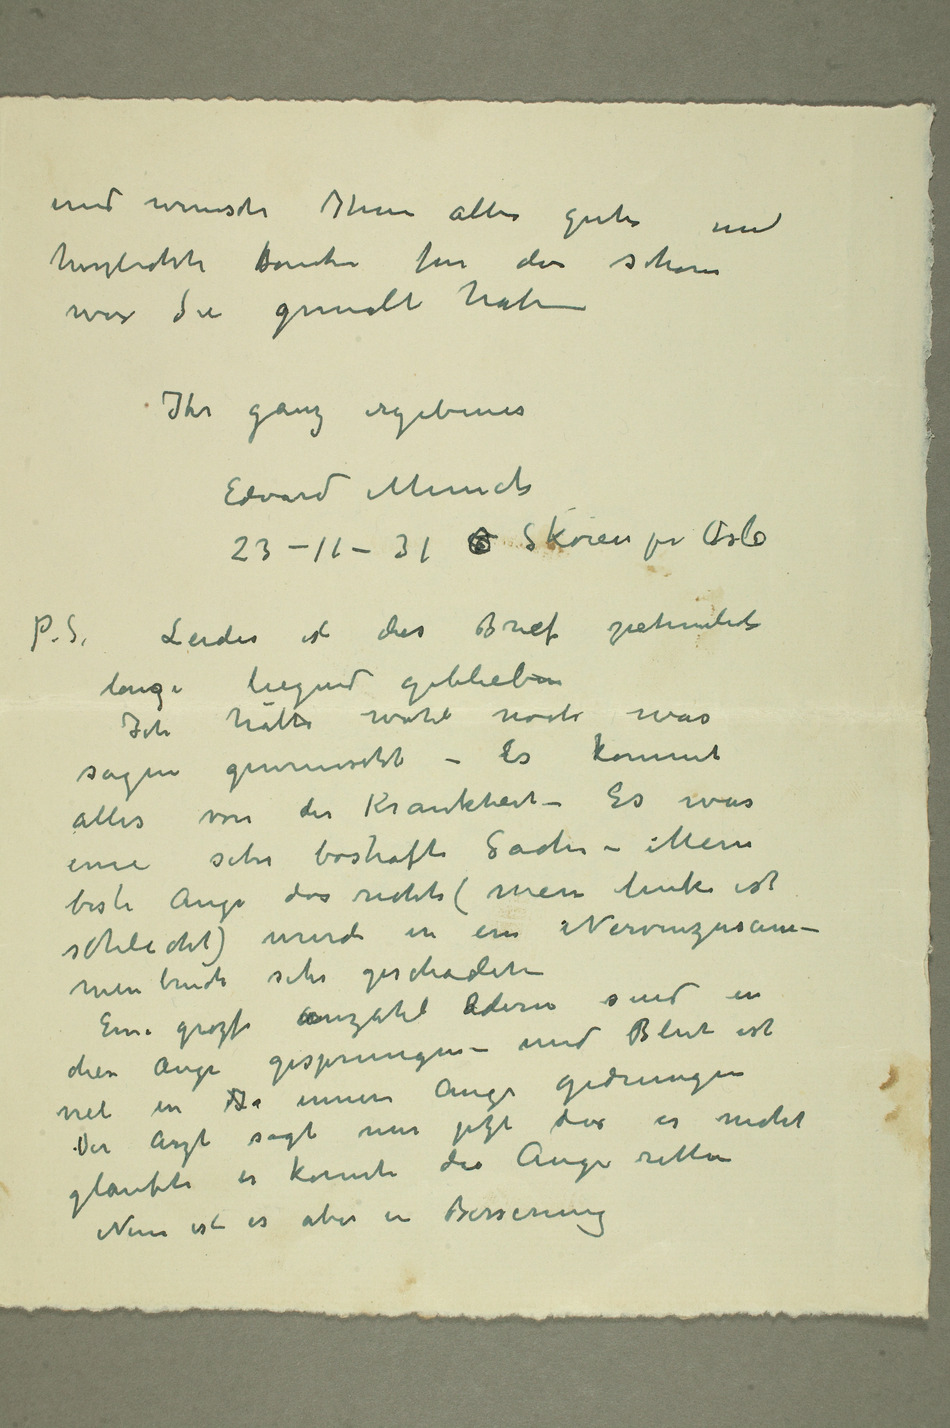 und wünsche Ihnen alles gute und
herzlichste Danke für das schöne
was Sie gemalt haben
Ihr ganz ergebenes
Edvard Munch
23 – 11 – 31 Sköien pr Oslo
P.S. Leider ist der Brief
lange liegend geblieben
Ich hätte wohl noch was
sagen gewünscht – Es kommt
alles von der Krankheit – Es war
eine sehr boshafte Sache – Mein
beste Auge das rechte (mein linke ist
schlecht) wurde in ein Nervenzusam–
menbruch sehr geschadet
Eine grozse anzahl Adern sind in
dies Auge gesprungen – und Blut ist
viel in innere Auge gedrungen
Der Arzt sagt mir jetzt das er nicht
glaubte er konnte das Auge retten
Nun ist es aber in Besserung